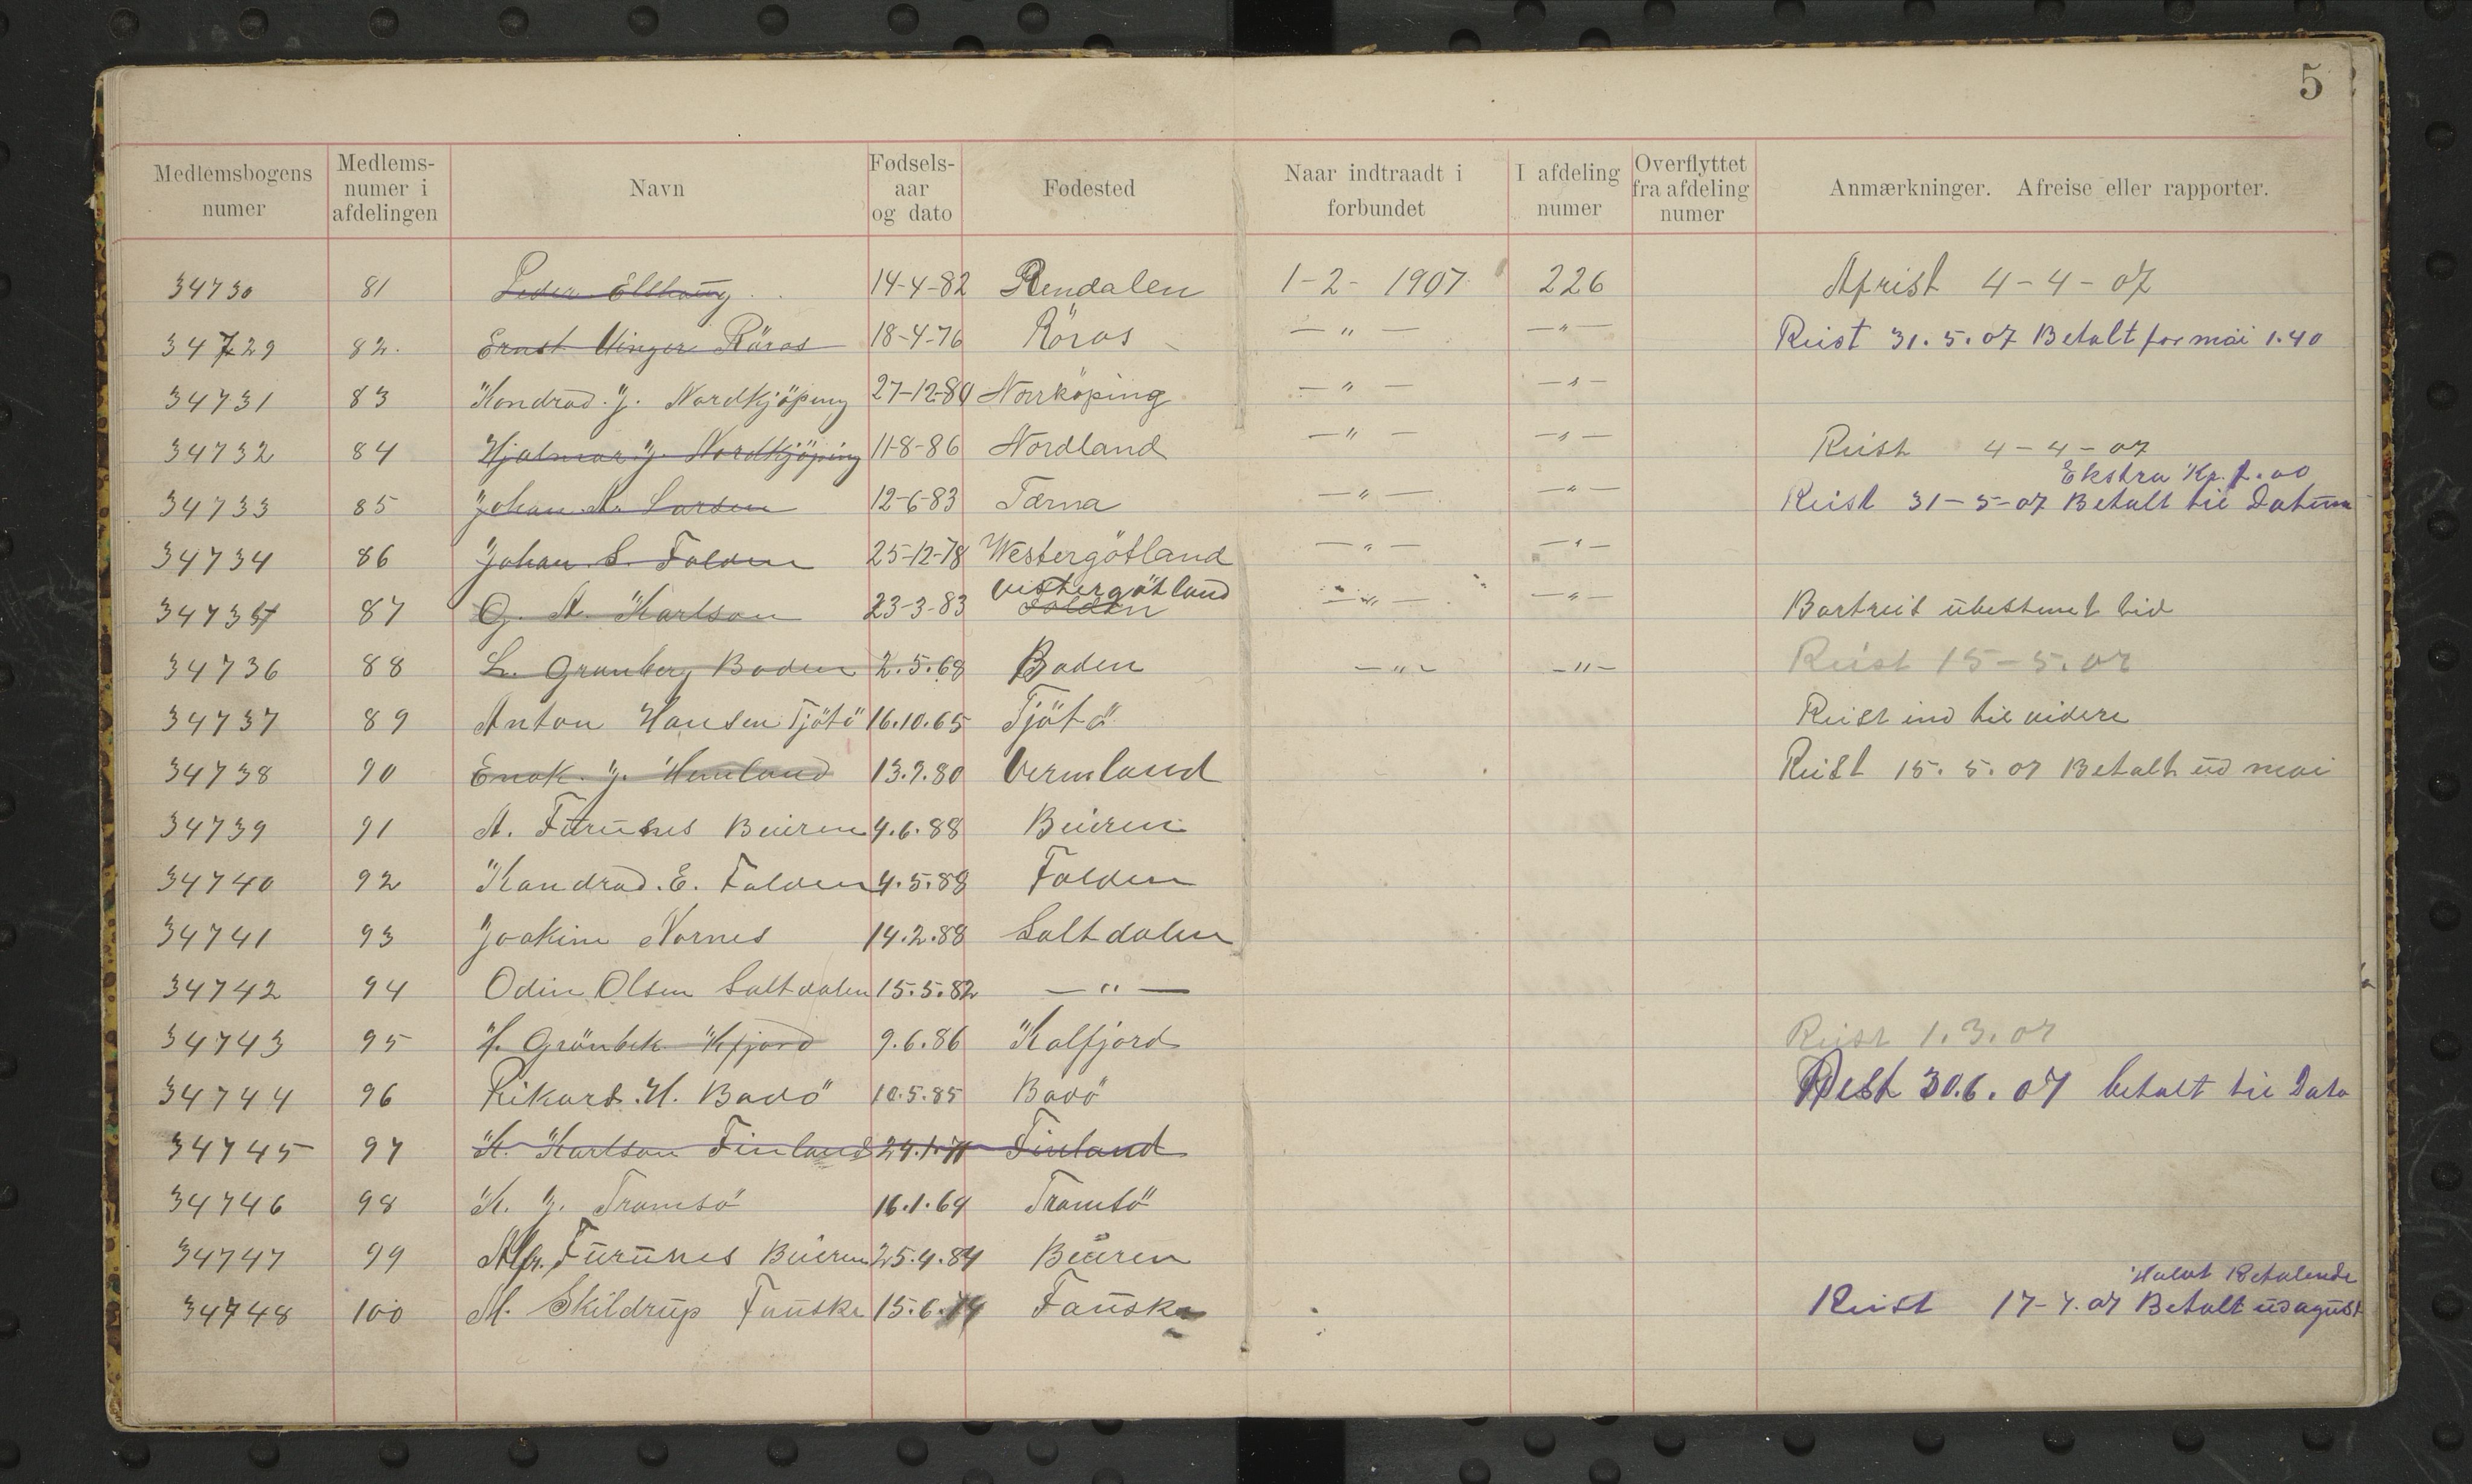 5
Medlemsbogens numer | Medlems-numer i afdelingen | Navn | Fødsels-aar og dato | Fødested | Naar indtraadt i forbundet | I afdeling numer | Overflyttet fra afdeling numer | Anmærkninger. Afreise eller rapporter.
34730 81 Peder 14-4-82 Rendalen 1-2-1907 226 Afrist 4-4-07
34729 82. Ernst Vinger Röros 18-4-76 Röros —"— —"— Reist 31.5.07 Betalt for mai 1.40
34731 83 Kondrad. J. Nordkjöping 27-12-80 Norrköping —"— —"—
34732 84 Hjalmar J. Nordkjöping 11-8-86 Nordland —"— —"— Reist 4-4-07
Ekstra Kr. .00
34733 85 Johan A. Larsen 12-6-83 Tærna —"— —"— Reist 31-5-07 Betalt til Datum
34734 86 Johan S. Folden 25-12-78 Westergötland —"— —"—
vestergötland
34735 87 O. A. Karlson 23-3-83 Folden —"— —"— Bortreist ubestemt tid
34736 88 L. Granberg Boden 2.5.68 Boden —"— —"— Reist 15-5.07
34737 89 Anton Hansen Tjötö 16.10.65 Tjötö Reist ind til videre
34738 90 Enok. J. Vermland 13.7.80 Vermland Reist 15.5.07 Betalt ud mai
34739 91 A. Furunes Beieren 4.6.88 Beieren
34740 92 Kondrad. E. Folden 4.5.88 Folden
34741 93 Joakim Nornes 14.2.88 Saltdalen
34742 94 Odin Olsen Saltdalen 15.5.82 —"—
34743 95 Grönbek Kfjord 9.6.86 Kalfjord Reist 1.3.07
34744 96 Rikard. H. Bodö 10.5.85 Bodö Rest 30.6.07 betalt til Dato
34745 97 K. Karlson Finland 24.1.71 Finland
34746 98 K. J. Tromsö 16.1.64 Tromsö
34747 99 Alfr. Furunes Beieren 25.4.84 Beieren
Halvt Betalende
34748 100 M. Skildrup Fauske 15.6.74 Fauske Reist 17-7.07 Betalt ud agust